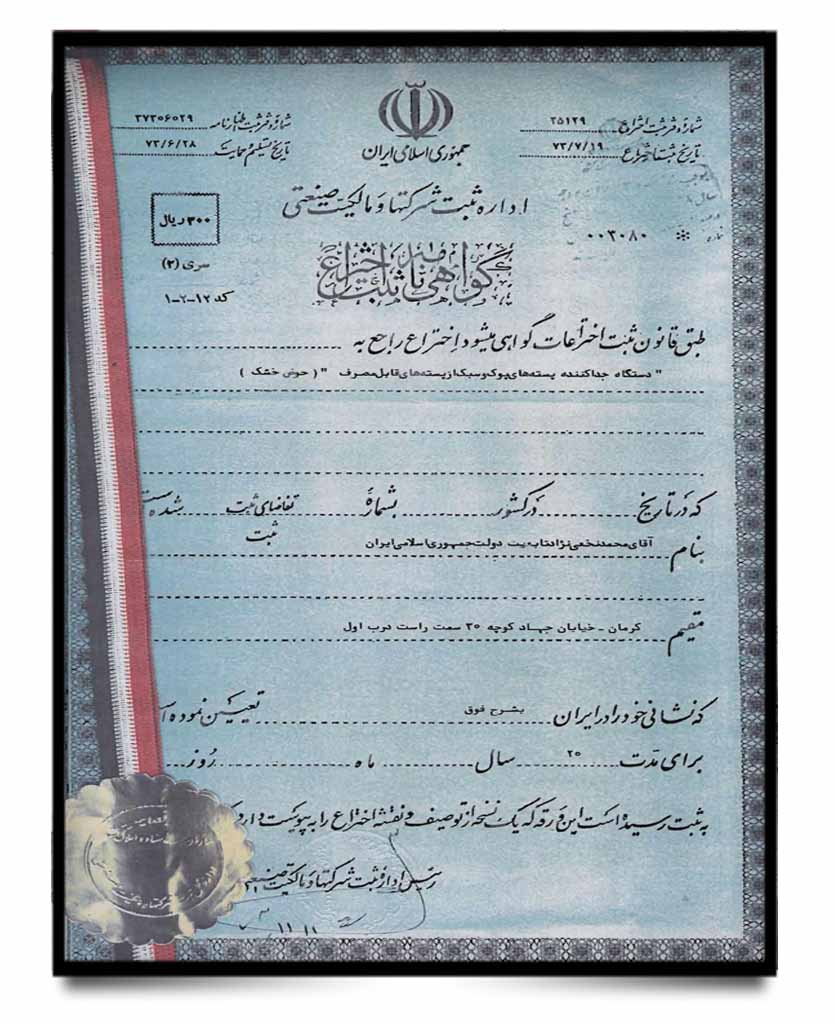 شماره و تاریخ ثبت اختراع ۲۵۱۲۹
تاریخ ثبت اختراع ۷۳/۷/۱۹
جمهوری اسلامی ایران
شماره ثبت اظهارنامه ۳۷۳۰۶۰۲۹
تاریخ تسلیم حمایت ۷۳/۶/۲۸
اداره ثبت شرکتها و مالکیت صنعتی
۳۰۰ ریال
۰۰۳۰۸۰
سری (۲)
گواهی نامه ثبت اختراع
کد ۱۲-۲-۱
طبق قانون ثبت اختراعات گواهی میشود اختراع راجع به
" دستگاه جداکننده پسته های پوک و سبک از پسته های قابل مصرف " ( حوض خشک )
که در تاریخ در کشور بشماره تقاضای ثبت شده است
ثبت
بنام آقای محمد نخعی نژاد تابعیت دولت جمهوری اسلامی ایران
مقیم کرمان - خیابان جهاد کوچه ۲۵ سمت راست درب اول
که نشانی خود را در ایران بشرح فوق تعیین نموده
برای مدت ۲۰ سال ماه روز
به ثبت رسیده است این ورقه که یک نسخه از توصیف و نقشه اختراع را به پیوست دارد
رئیس اداره ثبت شرکتها و مالکیت صنعتی